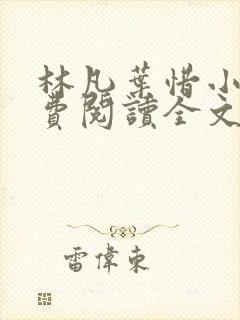 林凡葉惜小
費閱讀全文
雷偉東